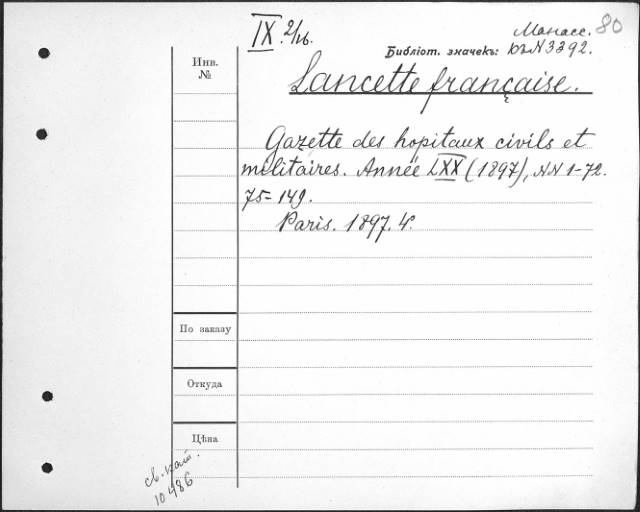 IX 2/26.
Манасс. 80
Библіот. значекъ: къ N 3392.
Инв.
№
Lancette française.
Gazette des hopitaux civils et
militaires. Année LXX (1897), NN 1-72.
75-149.
Paris. 1897. 4.
По заказу
Откуда
Цѣна
св. кат.
10486